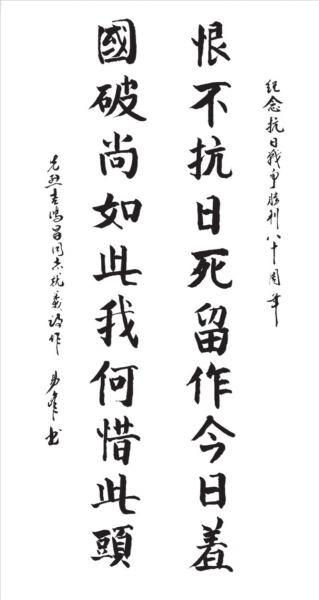 纪念抗日战争胜利八十周年
恨不抗日死留作今日羞
國破尚如此我何惜此頭
先烈吉鸿昌同志就義詩作 易峰书